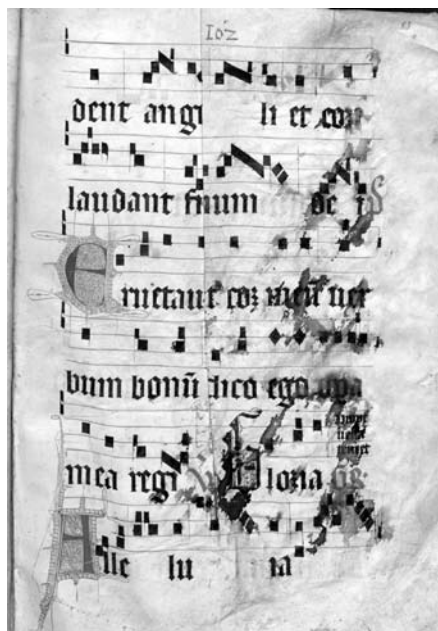 102
dent angi li et con
laudant finum de
Eructauit coz meū uer
bum bonū dico ego opa
mea regi Gloria
Alle lu ia